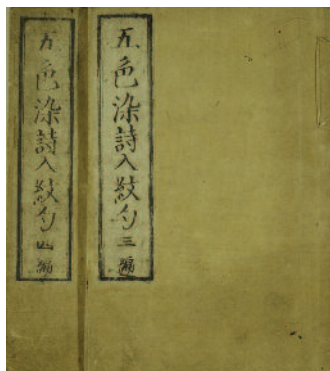 五色染詩入紋句三編
五色染詩入紋句四編